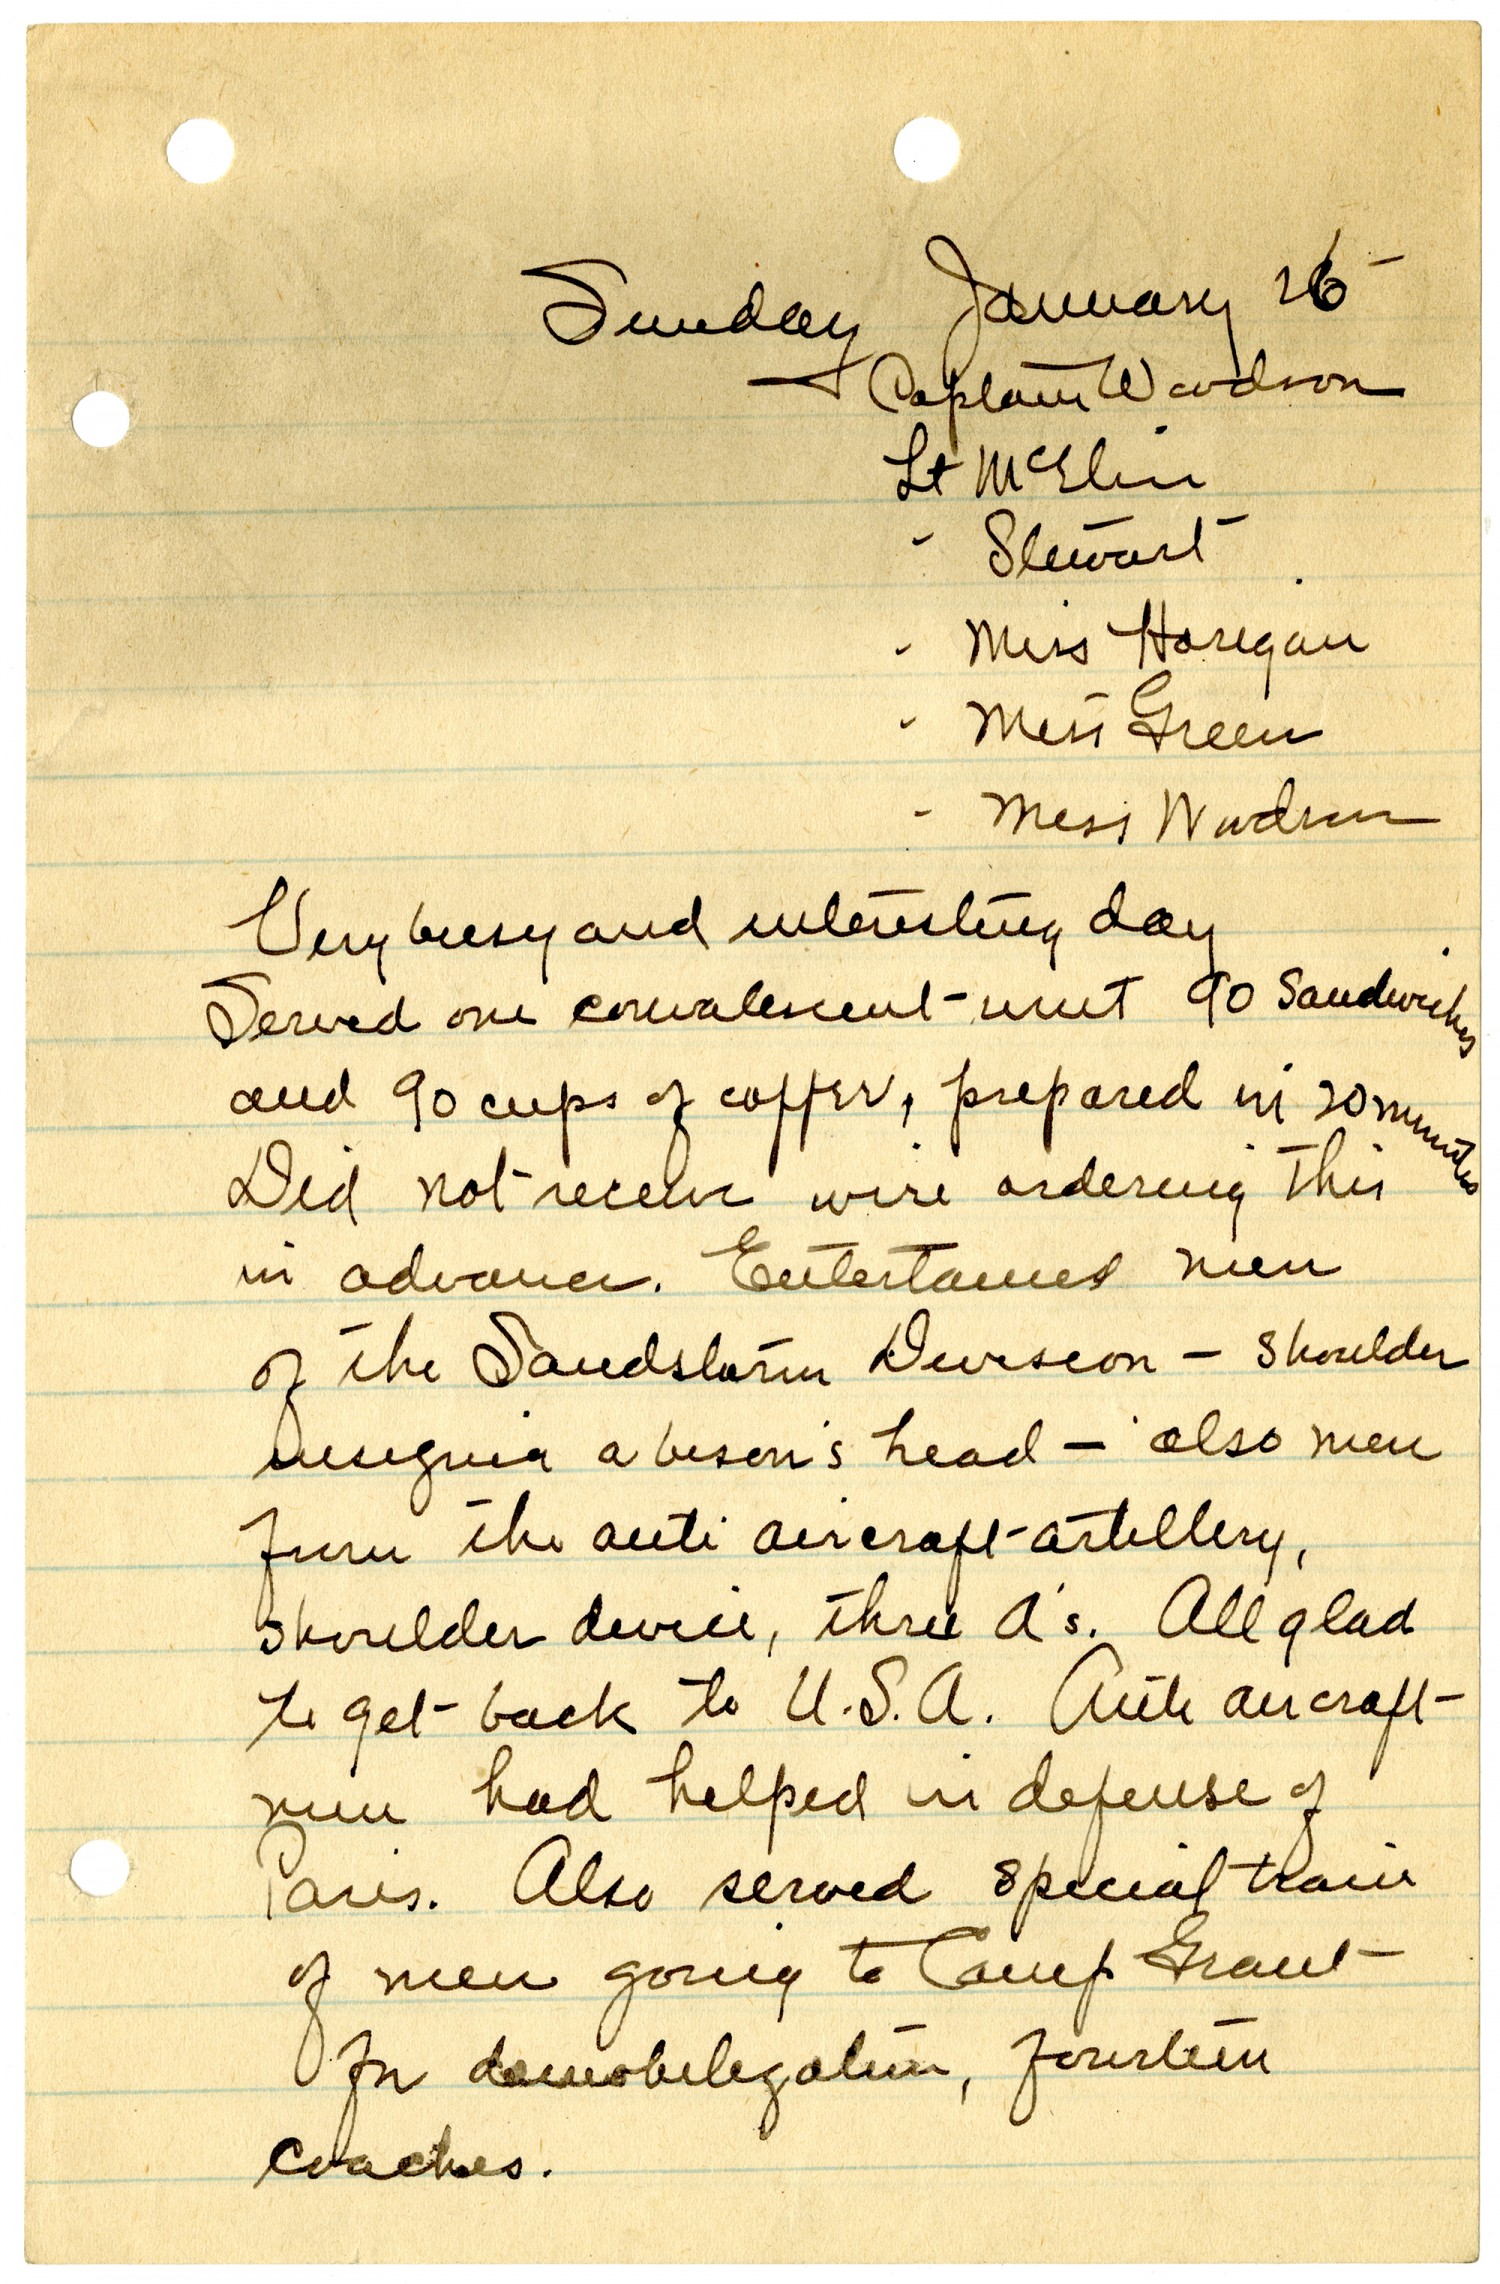 Sunday January 26
Captain Woodson
Lt McElin
" Stewart
" Miss Horigan
" Miss Green
" Miss Woodson
Very busy and interesting day
Served one convalescent unit 90 Sandwiches
and 90 cups of coffee, prepared in 20 minutes
Did not receive wire ordering this
in advance. Entertained men
of the Sandstorm Division – shoulder
insignia a bison's head – also men
from the anti aircraft artillery,
shoulder device, three A's. All glad
to get back to U.S.A. Anti aircraft
men had helped in defense of
Paris. Also served special train
of men going to Camp Grant
for demobilization, fourteen
coaches.